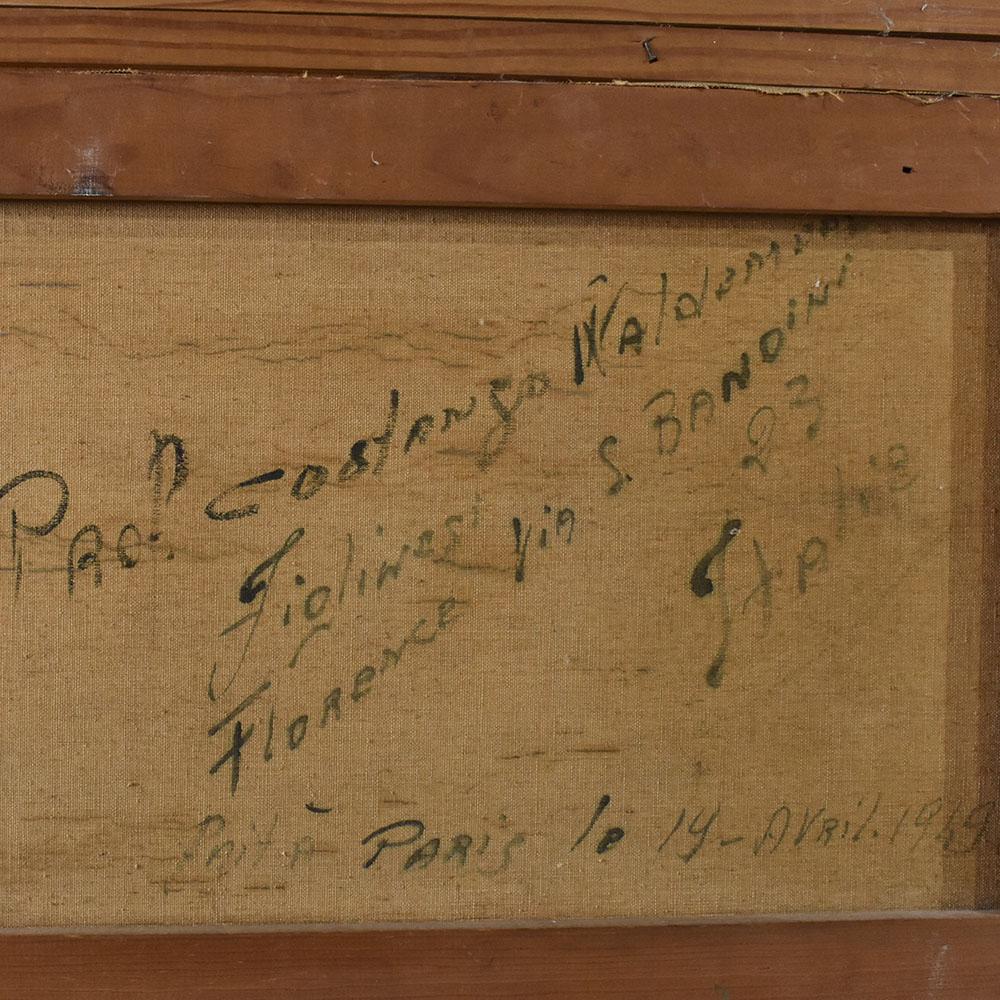 Prof. Costanzo Waldemar
Fiolinesi via S. BANDINI 23
FLORENCE Italie
Fait à PARIS le 14 - AVRIL. 1949